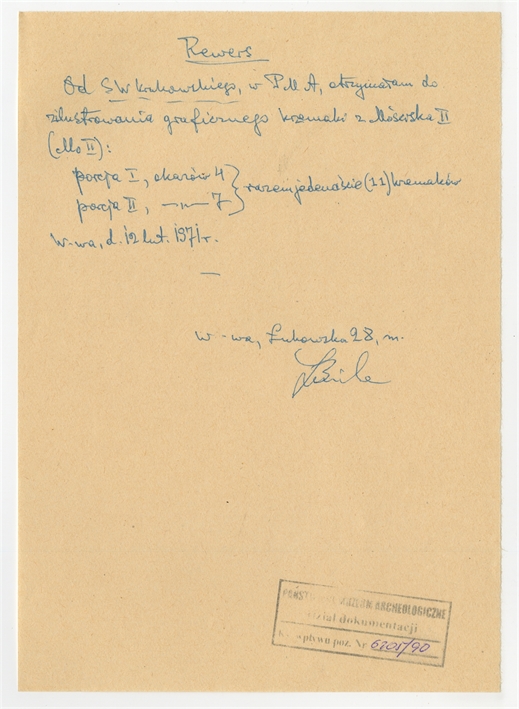 Rewers
Od SWKrukowskiego, w PMA, otrzymałam do
zilustrowania graficznego krzemaki z Mościska II
(Mo II):
porcja I, okazów 4
porcja II, —„— 7
razem jedenaście (11) krzemaków
W-wa, d. 12 lut. 1971 r.
—
W-wa, Łukowska 28, m.
PAŃSTWOWE MUZEUM ARCHEOLOGICZNE
Dział dokumentacji
wpływu poz. Nr 6201/90